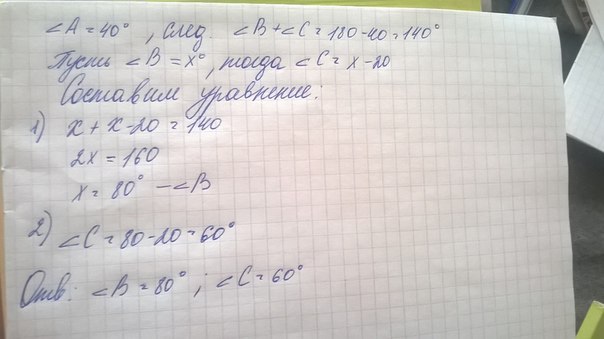 ∠A = 40°, след. ∠B + ∠C = 180 - 40 = 140°
Пусть ∠B = x°, тогда ∠C = x - 20
Составим уравнение:
1) x + x - 20 = 140
2x = 160
x = 80° - ∠B
2) ∠C = 80 - 20 = 60°
Отв: ∠B = 80°; ∠C = 60°